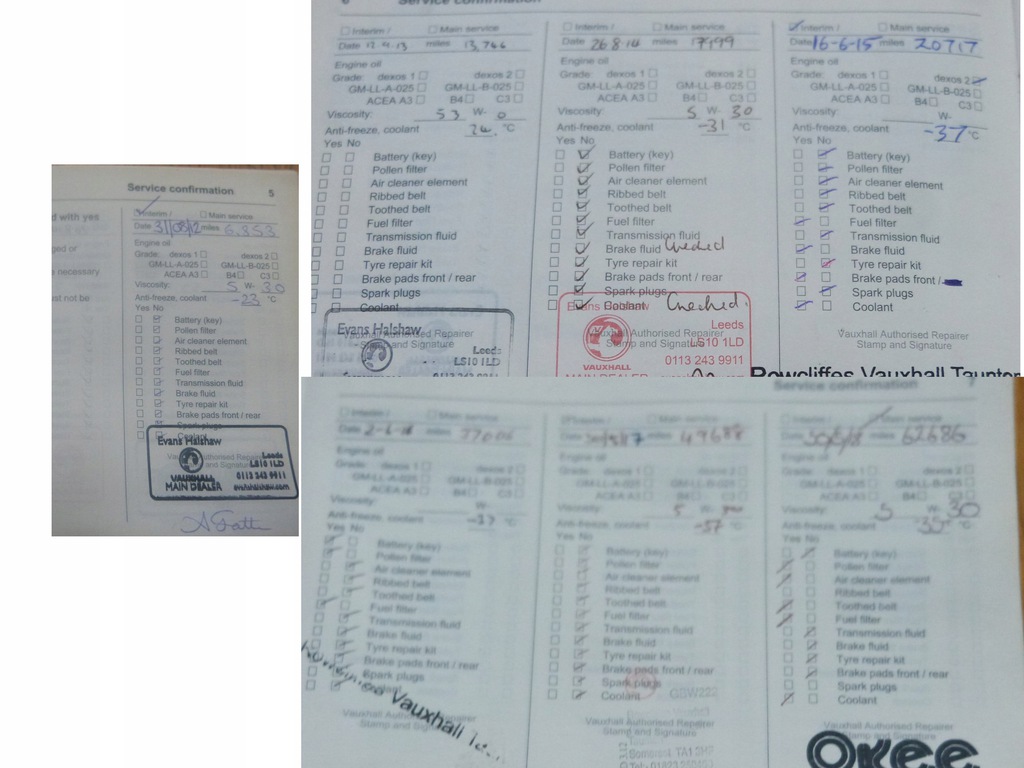 Service confirmation 5
d with yes
ged or
necessary
ust not be
Interim / Main service
Date 31/08/12 miles 6,853
Engine oil
Grade: dexos 1 dexos 2
GM-LL-A-025 GM-LL-B-025
ACEA A3 B4 C3
Viscosity: 5 W- 30
Anti-freeze, coolant -23 °C
Yes No
Battery (key)
Pollen filter
Air cleaner element
Ribbed belt
Toothed belt
Fuel filter
Transmission fluid
Brake fluid
Tyre repair kit
Brake pads front / rear
Spark plugs
Coolant
Evans Halshaw
Leeds
LS10 1LD
VAUXHALL 0113 243 9911
MAIN DEALER evanshalshaw.com
6 Service confirmation
Interim / Main service
Date 12.4.13 miles 13,766
Engine oil
Grade: dexos 1 dexos 2
GM-LL-A-025 GM-LL-B-025
ACEA A3 B4 C3
Viscosity: W-
Anti-freeze, coolant °C
Yes No
Battery (key)
Pollen filter
Air cleaner element
Ribbed belt
Toothed belt
Fuel filter
Transmission fluid
Brake fluid
Tyre repair kit
Brake pads front / rear
Spark plugs
Coolant
Evans Halshaw
Vauxhall Authorised Repairer
Stamp and Signature
Leeds
LS10 1LD
Interim / Main service
Date 26 8.14 miles 17,199
Engine oil
Grade: dexos 1 dexos 2
GM-LL-A-025 GM-LL-B-025
ACEA A3 B4 C3
Viscosity: 5 W- 30
Anti-freeze, coolant -31 °C
Yes No
Battery (key)
Pollen filter
Air cleaner element
Ribbed belt
Toothed belt
Fuel filter
Transmission fluid
Brake fluid Checked
Tyre repair kit
Brake pads front / rear
Spark plugs
Coolant Checked.
Evans Halshaw
Vauxhall Authorised Repairer
Stamp and Signature
Leeds
LS10 1LD
0113 243 9911
VAUXHALL
MAIN DEALER
Interim / Main service
Date 16-6-15 miles 20717
Engine oil
Grade: dexos 1 dexos 2
GM-LL-A-025 GM-LL-B-025
ACEA A3 B4 C3
Viscosity: W-
Anti-freeze, coolant -37 °C
Yes No
Battery (key)
Pollen filter
Air cleaner element
Ribbed belt
Toothed belt
Fuel filter
Transmission fluid
Brake fluid
Tyre repair kit
Brake pads front /
Spark plugs
Coolant
Vauxhall Authorised Repairer
Stamp and Signature
Rowcliffes Vauxhall Taunton
Service confirmation 7
Interim / Main service
Date 2-6-16 miles
Engine oil
Grade: dexos 1 dexos 2
GM-LL-A-025 GM-LL-B-025
ACEA A3 B4 C3
Viscosity: W-
Anti-freeze, coolant -37 °C
Yes No
Battery (key)
Pollen filter
Air cleaner element
Ribbed belt
Toothed belt
Fuel filter
Transmission fluid
Brake fluid
Tyre repair kit
Brake pads front / rear
Spark plugs
Vauxhall
Stamp and Signature
Interim / Main service
Date miles 49688
Engine oil
Grade: dexos 1 dexos 2
GM-LL-A-025 GM-LL-B-025
ACEA A3 B4 C3
Viscosity: 5 W-
Anti-freeze, coolant -37 °C
Yes No
Battery (key)
Pollen filter
Air cleaner element
Ribbed belt
Toothed belt
Fuel filter
Transmission fluid
Brake fluid
Tyre repair kit
Brake pads front / rear
Spark plugs
Coolant GBW222
Vauxhall Authorised Repairer
Stamp and Signature
Somerset, TA1 2
Interim / Main service
Date 30/5/18 miles 62686
Engine oil
Grade: dexos 1 dexos 2
GM-LL-A-025 GM-LL-B-025
ACEA A3 B4 C3
Viscosity: 5 W- 30
Anti-freeze, coolant -35 °C
Yes No
Battery (key)
Pollen filter
Air cleaner element
Ribbed belt
Toothed belt
Fuel filter
Transmission fluid
Brake fluid
Tyre repair kit
Brake pads front / rear
Spark plugs
Coolant
Vauxhall Authorised Repairer
Stamp and Signature